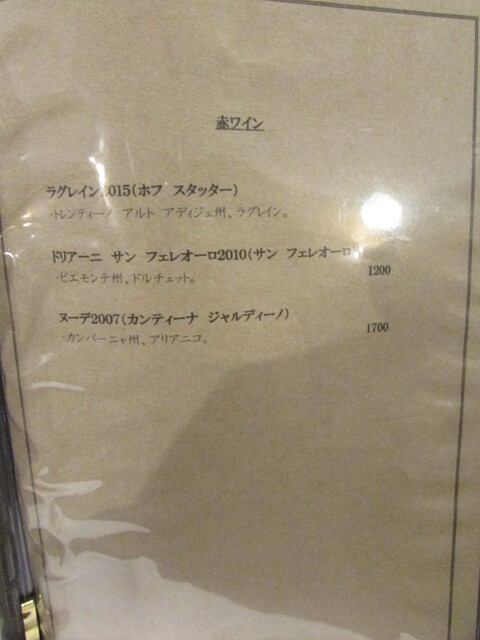 赤ワイン
ラグレイン2015(ホフ スタッター)
・トレンティーノ アルト アディジェ州、ラグレイン。
ドリアーニ サン フェレオーロ2010(サン フェレオーロ
・ピエモンテ州、ドルチェット。
1200
ヌーデ2007(カンティーナ ジャルディーノ)
・カンパーニャ州、アリアニコ。
1700